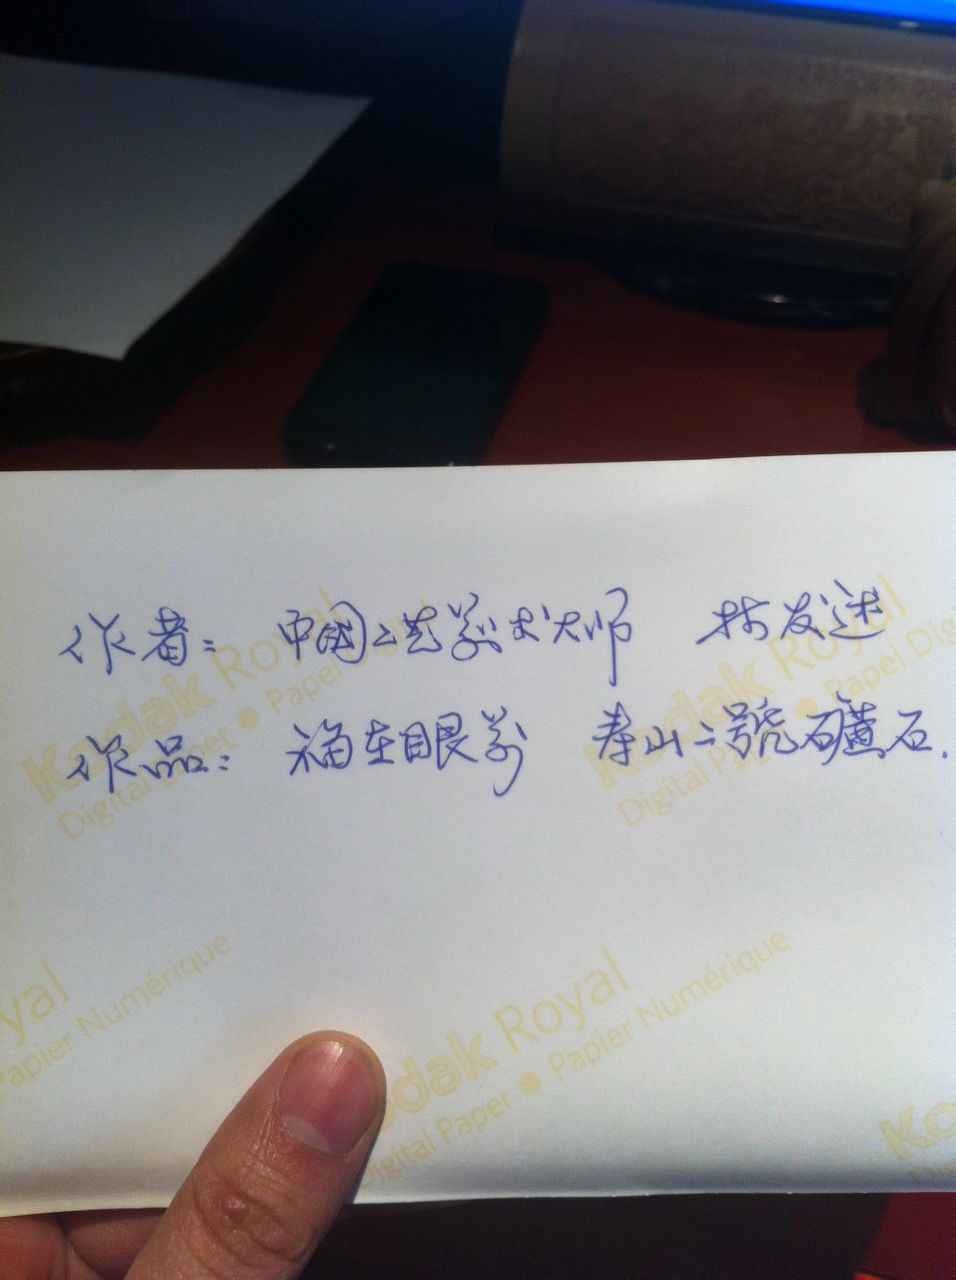 作者: 中国工艺美术大师 林发述
作品: 福在眼前 寿山二號礦石.
Kodak Royal
Digital Paper • Papel Digital
Kodak Royal
Digital Paper • Papel Digi
yal
Papier Numérique
Kodak Royal
Digital Paper • Papier Numérique
Ko